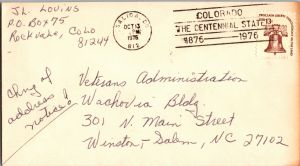 J.L. Lovins
P.O. Box 75
Rockvale, Colo
81244
SALIDA, C
OCT 13
PM
1976
812
COLORADO
THE CENTENNIAL STATE
1876 1976
Chng of
address
notice
Veterans Administration
Wachovia Bldg.
301 N. Main Street
Winston-Salem, NC 27102